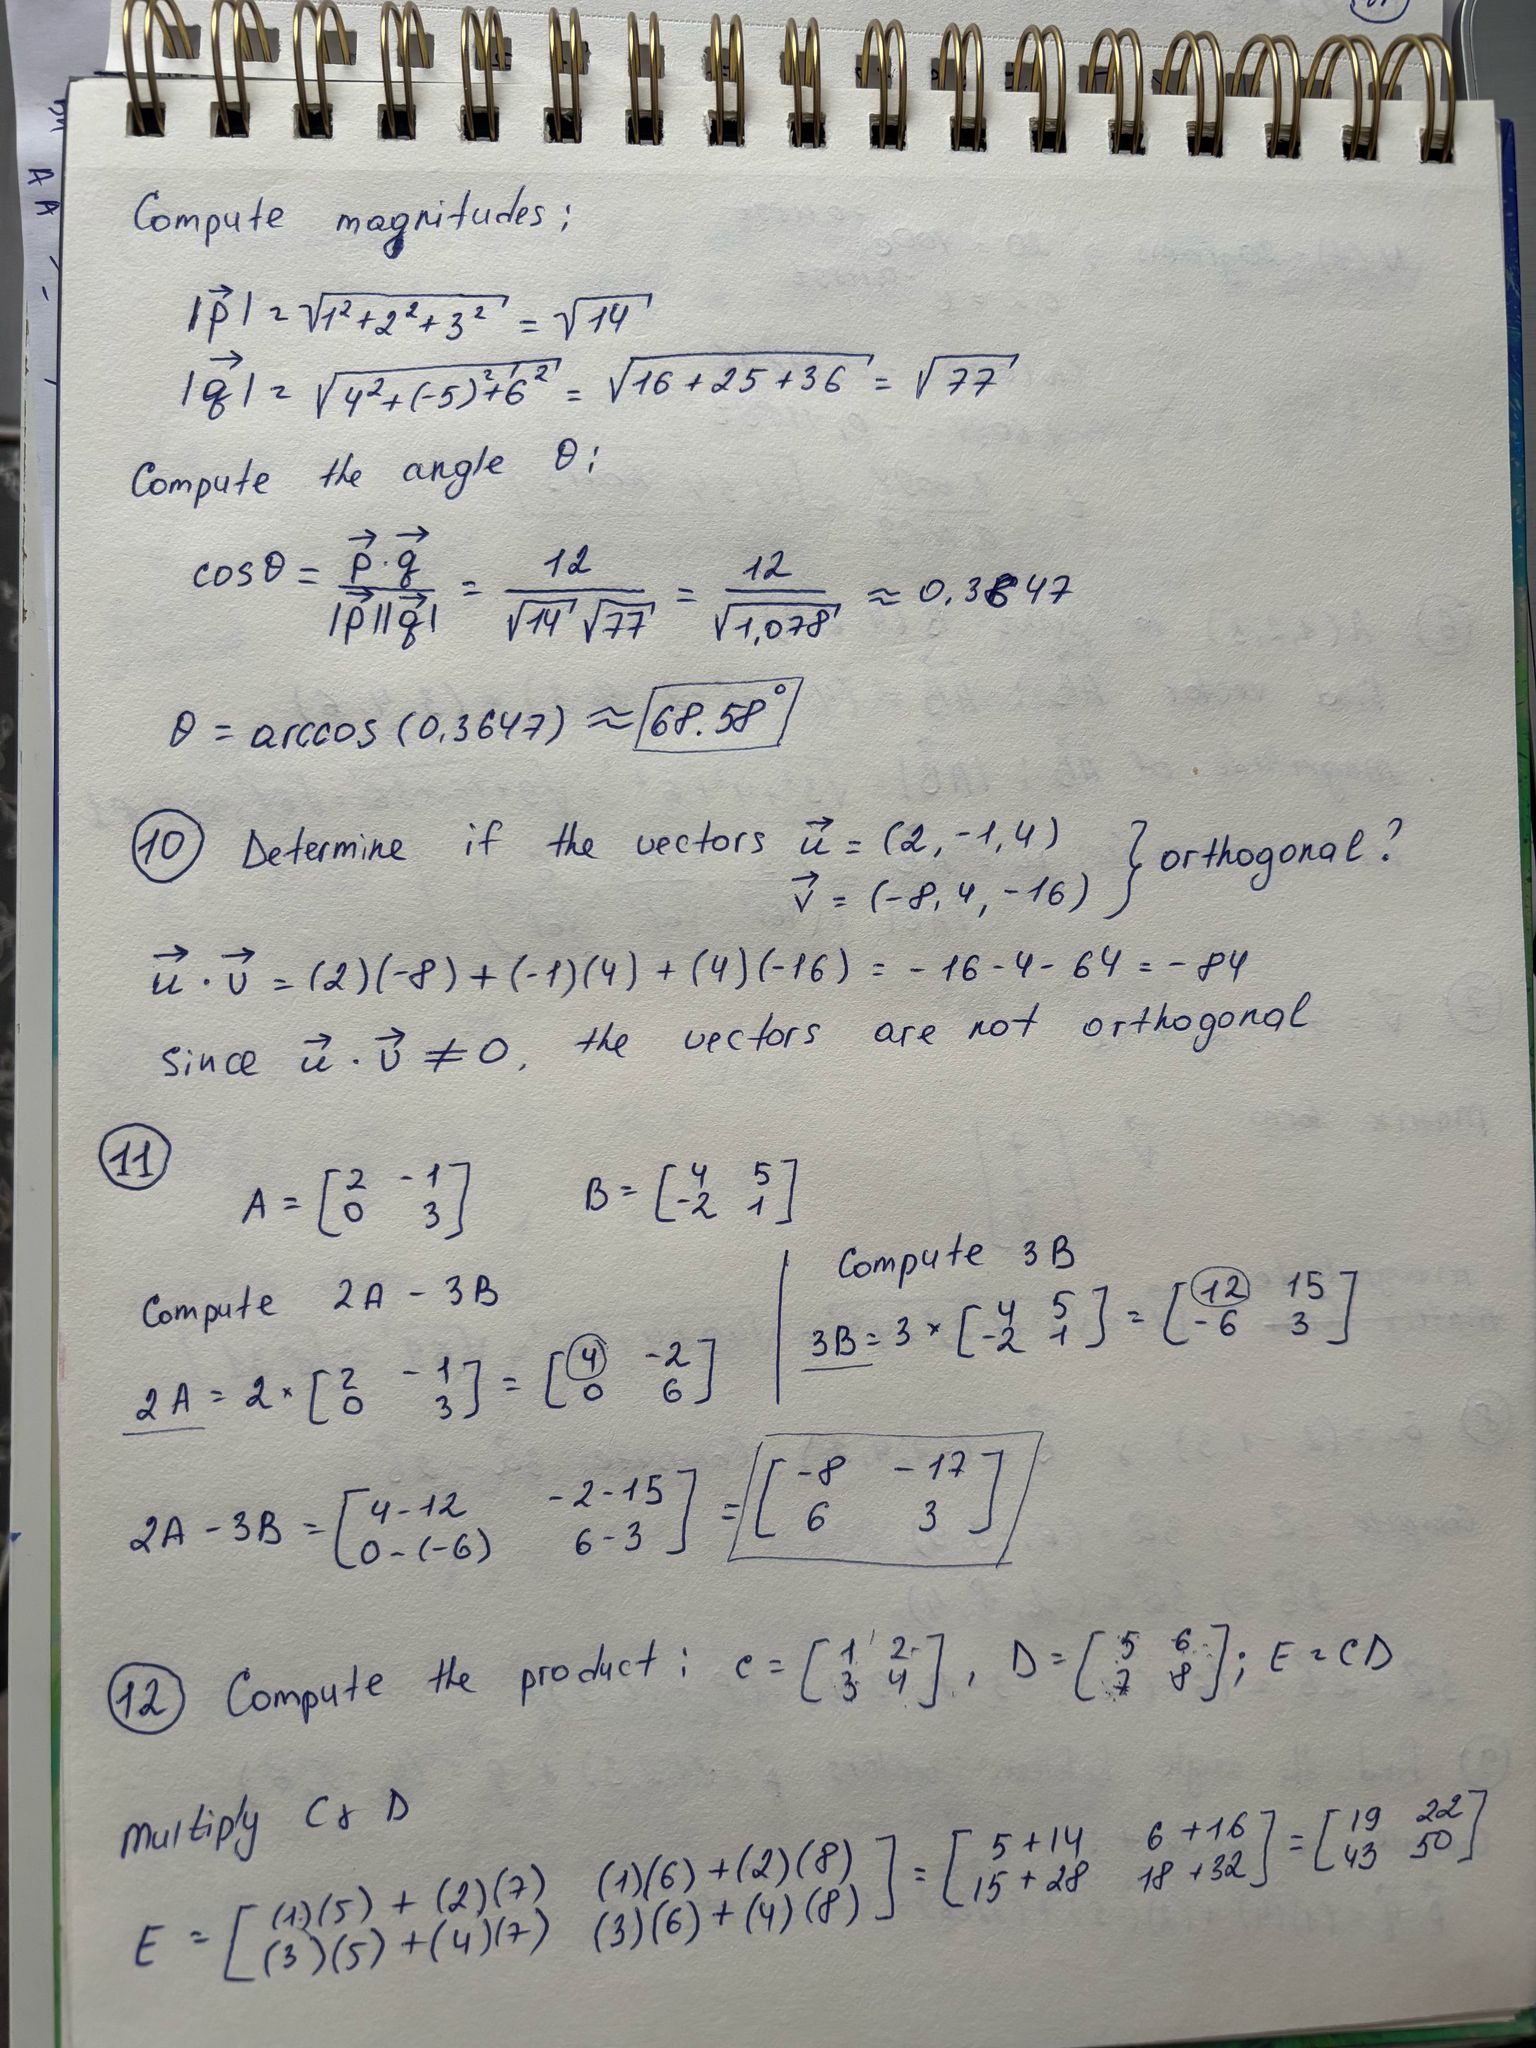 Compute magnitudes:
|p⃗| = √(1² + 2² + 3²) = √14
|q⃗| = √(4² + (-5)² + 6²) = √(16 + 25 + 36) = √77
Compute the angle θ:
cosθ = (p⃗ · q⃗)/(|p⃗||q⃗|) = 12/(√14 √77) = 12/√1,078 ≈ 0.3647
θ = arccos(0.3647) ≈ 68.58°
10 Determine if the vectors u⃗ = (2, -1, 4) } orthogonal?
v⃗ = (-8, 4, -16)
u⃗ · v⃗ = (2)(-8) + (-1)(4) + (4)(-16) = -16 - 4 - 64 = -84
since u⃗ · v⃗ ≠ 0, the vectors are not orthogonal
11
A = [2 -1; 0 3] B = [4 5; -2 1]
Compute 2A - 3B
2A = 2 × [2 -1; 0 3] = [4 -2; 0 6]
Compute 3B
3B = 3 × [4 5; -2 1] = [12 15; -6 3]
2A - 3B = [4-12 -2-15; 0-(-6) 6-3] = [-8 -17; 6 3]
12 Compute the product: C = [1 2; 3 4], D = [5 6; 7 8]; E = CD
Multiply C & D
E = [(1)(5) + (2)(7) (1)(6) + (2)(8); (3)(5) + (4)(7) (3)(6) + (4)(8)] = [5+14 6+16; 15+28 18+32] = [19 22; 43 50]